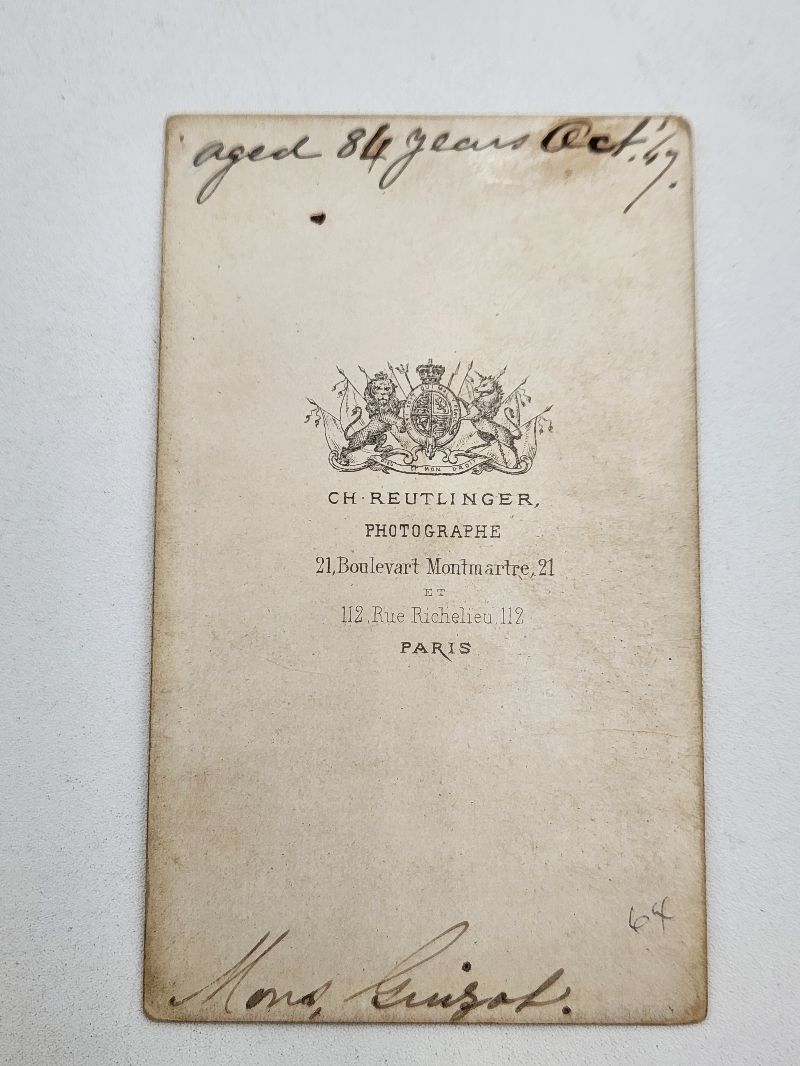 aged 84 years Oct.
CH · REUTLINGER,
PHOTOGRAPHE
21, Boulevart Montmartre, 21
ET
112, Rue Richelieu, 112
PARIS
64
Mons, Guizot.